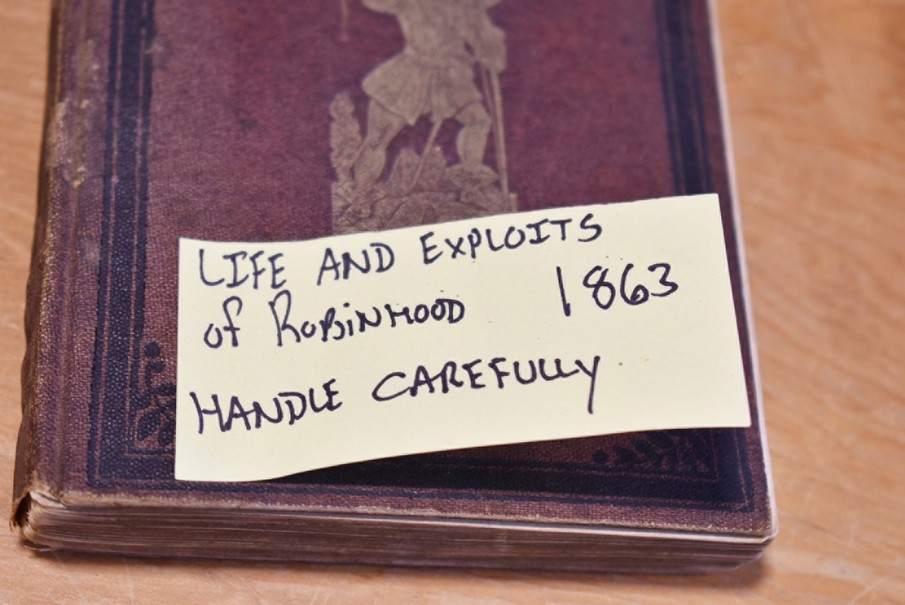 LIFE AND EXPLOITS
of RoBiNHOOD 1863
HANDLE CAREFULLY